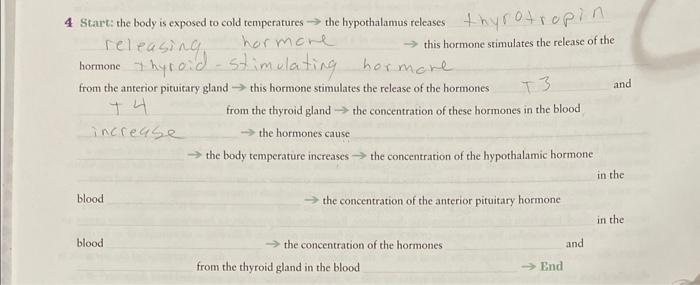 4 Start: the body is exposed to cold temperatures → the hypothalamus releases thyrotropin
releasing hormone → this hormone stimulates the release of the
hormone thyroid-stimulating hormone
from the anterior pituitary gland → this hormone stimulates the release of the hormones T3 and
T4 from the thyroid gland → the concentration of these hormones in the blood
increase → the hormones cause
→ the body temperature increases → the concentration of the hypothalamic hormone
in the
blood → the concentration of the anterior pituitary hormone
in the
blood → the concentration of the hormones and
from the thyroid gland in the blood → End